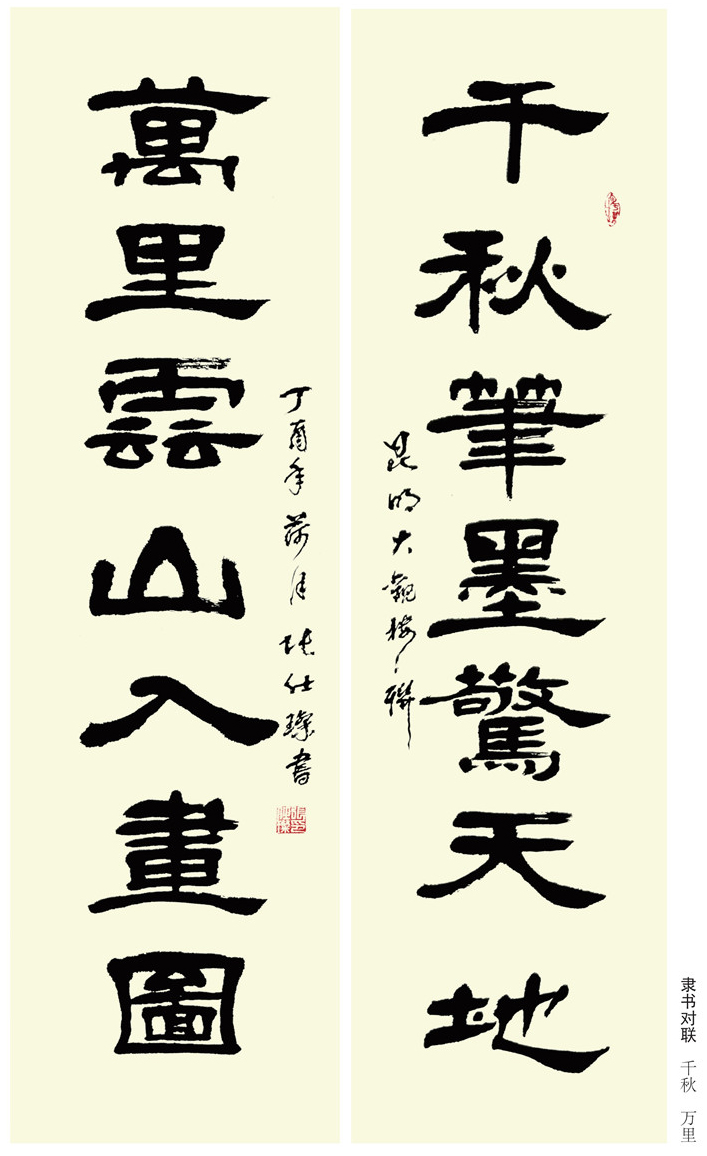 千秋筆墨驚天地
昆明大觀樓之聯
萬里雲山入畫圖
丁酉年荷月張仕璨書
隶书对联 千秋 万里